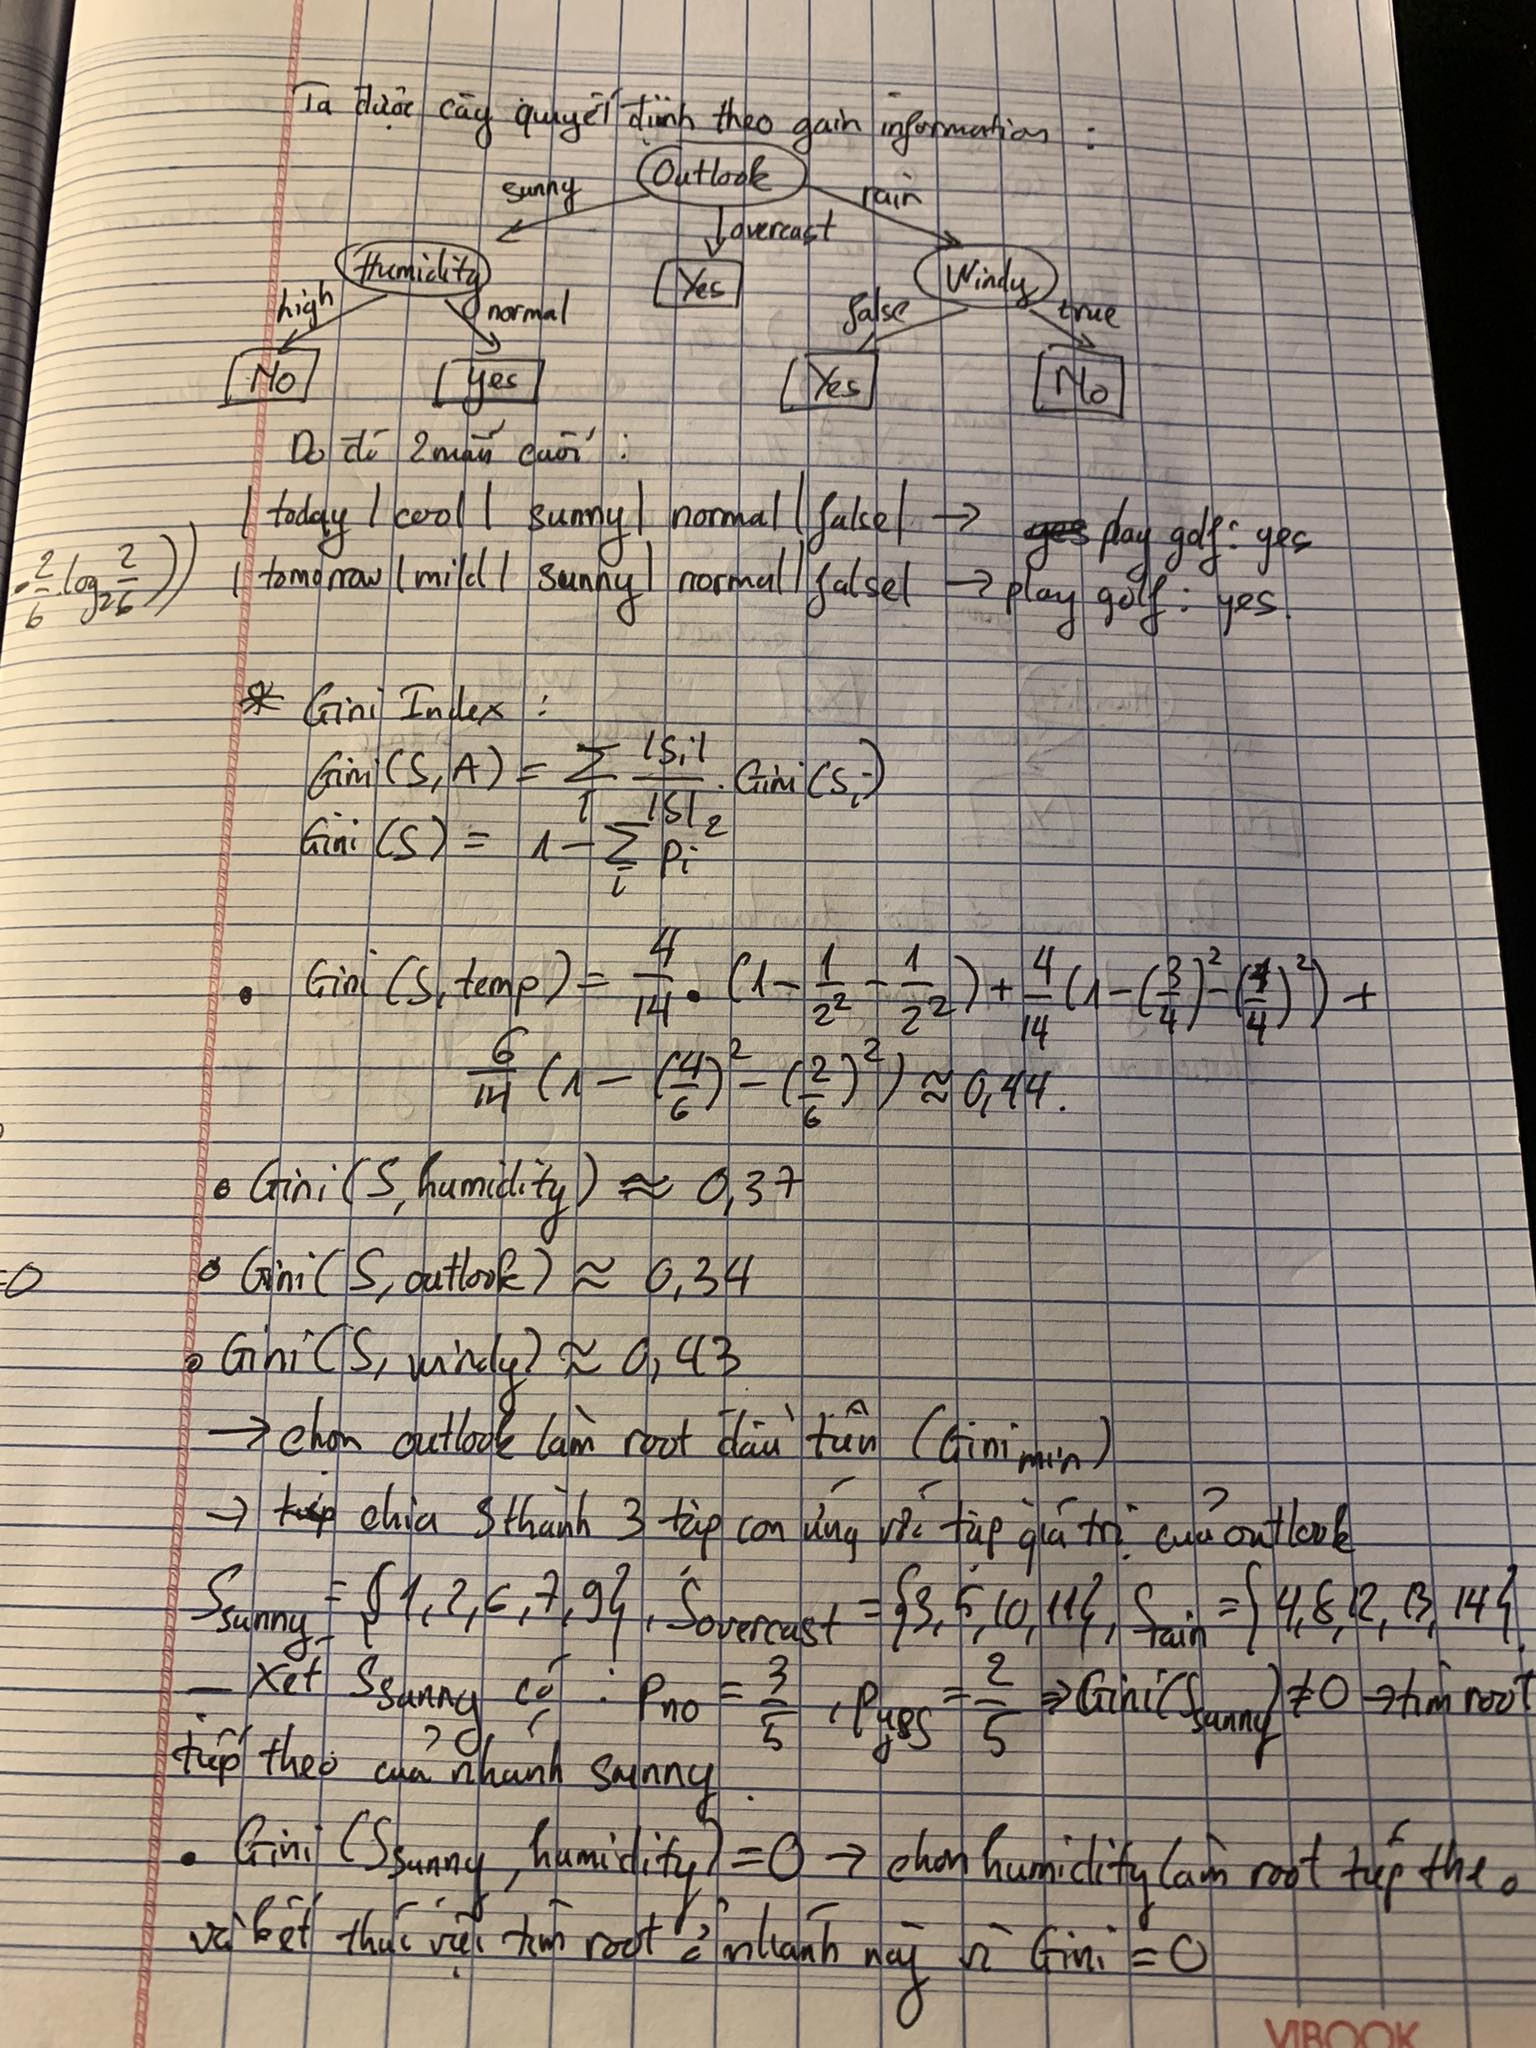 Ta được cây quyết định theo gain information :
Outlook
sunny
overcast
rain
Humidity
Yes
Windy
high
normal
false
true
No
yes
Yes
No
Do đó 2 mẫu cuối :
| today | cool | sunny | normal | false | → play golf : yes
| tomorrow | mild | sunny | normal | false | → play golf : yes.
2/6 log₂ 2/6 ))
* Gini Index :
Gini (S, A) = Σ_i |S_i|/|S| . Gini (S_i)
Gini (S) = 1 - Σ_i p_i²
• Gini (S, temp) = 4/14 . (1 - 1/2² - 1/2²) + 4/14 (1 - (3/4)² - (1/4)²) +
6/14 (1 - (4/6)² - (2/6)²) ≈ 0,44.
• Gini (S, humidity) ≈ 0,37
=0
• Gini (S, outlook) ≈ 0,34
• Gini (S, windy) ≈ 0,43
→ chọn outlook làm root đầu tiên (Gini min)
→ chia S thành 3 tập con ứng với tập giá trị của outlook
S_sunny = {1, 2, 6, 7, 9}, S_overcast = {3, 5, 10, 11}, S_rain = {4, 8, 12, 13, 14}.
- Xét S_sunny có : P_no = 3/5 , P_yes = 2/5 ⇒ Gini(S_sunny) ≠ 0 → tìm root
tiếp theo của nhánh sunny.
• Gini (S_sunny, humidity) = 0 → chọn humidity làm root tiếp theo
và kết thúc việc tìm root ở nhánh này vì Gini = 0
VIBOOK